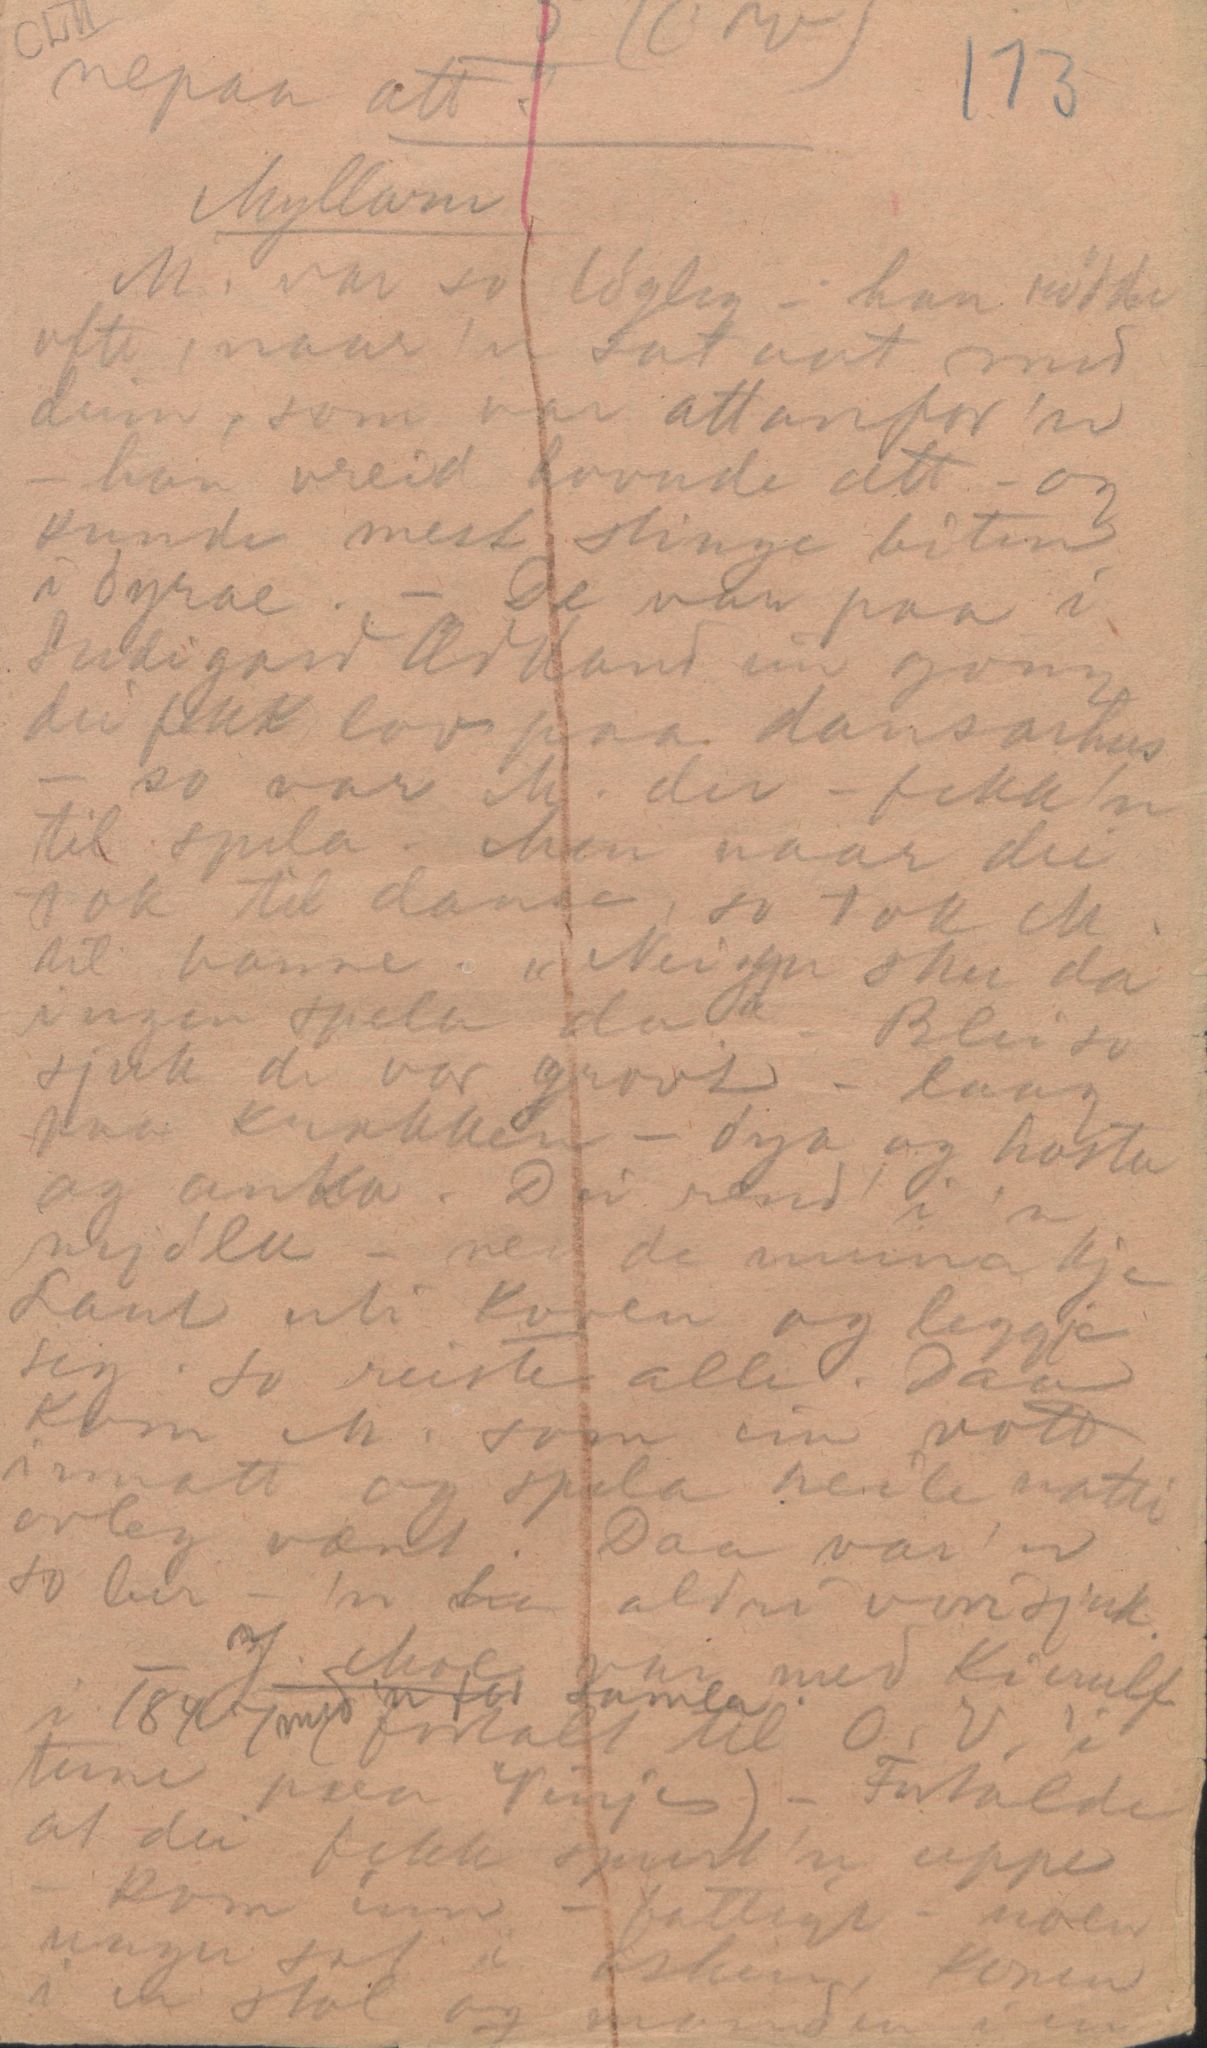 173
nepaa att
Myllarn
M. var so löglig - han rödde
ofte, naar 'n sat aat med
deim, som var attanfor 'n
- han vreid hovude att - og
kunde mest stinge biten
i öyrae. - De var paa i
Ødland ein gong
dei fekk lov paa dansarhus
- so var M. der - fekk 'n
til spela. Men naar dei
tok til danse, so tok M.
til banne. "Neiggu sku da
ingen spela da" - Blei so
sjuk de var grovt - laag
paa krakken - öya og hosta
og anka. Dei rend' i 'n
mjölk - nei de muna kje
Laut uti koven og leggje
seg. So reiste alle. Daa
kom M. som ein vott
innatt og spela heile natti
ovleg vænt. Daa var 'n
so ber - 'n aldri vondsjuk.
J. Moe var med Kierulf
med 'n for samla
i 184 fortalt til O. V. i
teine paa Vinje) - Fortalde
at dei fekk spurt 'n uppe
- kom inn - fattigt - noen
unger sat i asken, konen
i en stol og manden i en